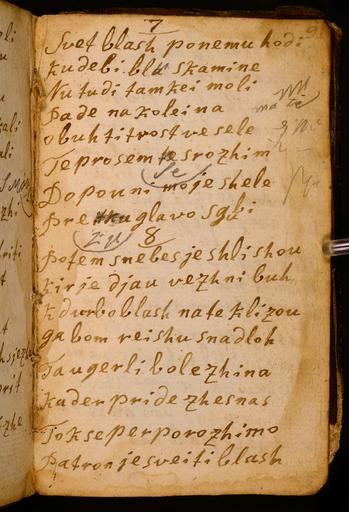 7
Svet blash ponemu hodi
kudebi. blu skamine
Nu tudi tamkei moli
pade na koleina
obuh ti trost vesele
Te prosem te srozhim
Dopouni moje shele
pre glavo sgubi
8
potem snebes je shlishou
kir je djau vezhni buh
kdurbo blash nate klizou
ga bom reishu snadloh
Taugerli bolezhina
kader pride zhes nas
Tok se per porozhimo
patron je sveiti blash